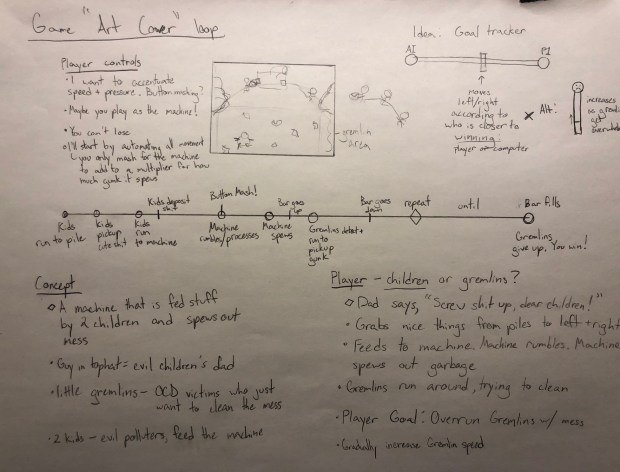 Game "Art Cover" loop
Player controls
• I want to accentuate
speed + pressure. Button mashing?
• Maybe you play as the machine!
• You can't lose
I'll start by automating all movement
you only mash for the machine
to add to a multiplier for how
much gunk it spews
gremlin
area
Idea: Goal tracker
AI
P1
moves
left/right
according to
who is closer to
winning:
player or computer
Alt:
increases
as gremlins
get
overwhelmed
Kids
run to pile
Kids
pickup
cute shit
Kids
run
to machine
Kids deposit
shit
Button Mash!
Machine
rumbles/processes
Machine
spews
Bar goes
up
Gremlins detect +
run to
pickup
gunk
Bar goes
down
repeat
until
Bar fills
Gremlins
give up. You win!
Concept
◇ A machine that is fed stuff
by 2 children and spews out
mess
• Guy in tophat = evil children's dad
• little gremlins - OCD victims who just
want to clean the mess
• 2 kids - evil polluters, feed the machine
Player - children or gremlins?
◇ Dad says, "Screw shit up, dear children!"
• Grabs nice things from piles to left + right
• Feeds to machine. Machine rumbles. Machine
spews out garbage
• Gremlins run around, trying to clean
• Player Goal: Overrun Gremlins w/ mess
• Gradually increase Gremlin speed